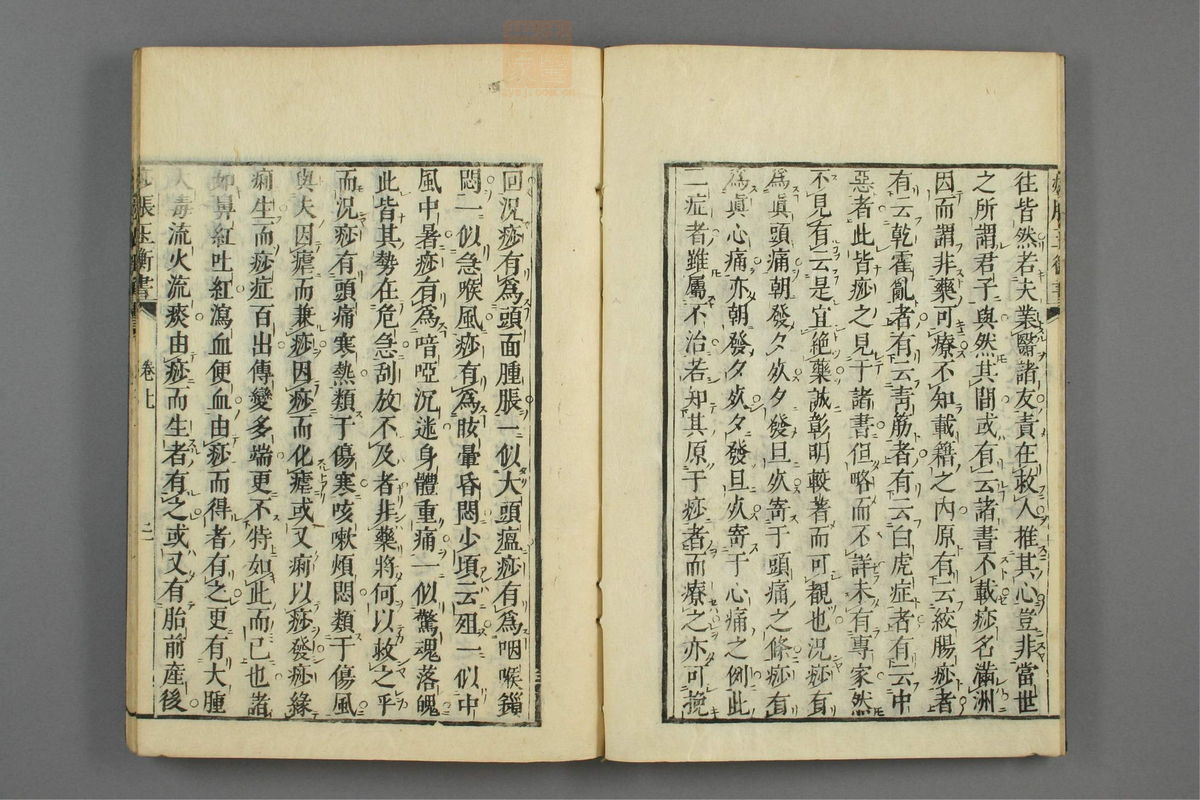 往皆然若夫業醫諸友責在救人推其心豈非當世
之所謂君子與然其間或有云諸書不載痧名滿洲
因而謂非藥可療不知載籍之内原有云絞腸痧者
有云乾霍亂者有云靑筋者有云白虎症者有云中
惡者此皆痧之見于諸書但略而不詳未有專家然
不見有云是宜絶藥誠彰明較著而可覩也況痧有
爲眞頭痛朝發夕㱸夕發旦㱸寄于頭痛之條痧有
爲眞心痛亦朝發夕㱸夕發旦㱸寄于心痛之例此
二症者雖屬不治若知其原于痧者而療之亦可挽
回況痧有爲頭面腫脹一似大頭瘟痧有爲咽喉鎖
悶一似急喉風痧有爲眩暈昏悶少頃云殂一似中
風中暑痧有爲喑啞沉迷身體重痛一似驚魂落魄
此皆其勢在危急刮放不及者非藥將何以救之乎
而況痧有頭痛寒熱類于傷寒咳嗽煩悶類于傷風
與夫因瘧而兼痧因痧而化瘧或又痢以痧發痧緣
痢生而痧症百出傳變多端更不特如此而已也諸
如鼻紅吐紅瀉血便血由痧而得者有之更有大腫
大毒流火流痰由痧而生者有之或又有胎前産後
痧脹玉衡書
卷上
二